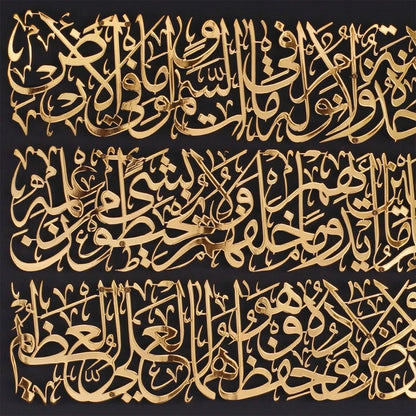 سنة ولا نوم له ما في السموات وما في الأرض
أيديهم وما خلفهم ولا يحيطون بشيء من علمه
ولا يؤده حفظهما وهو العلي العظيم